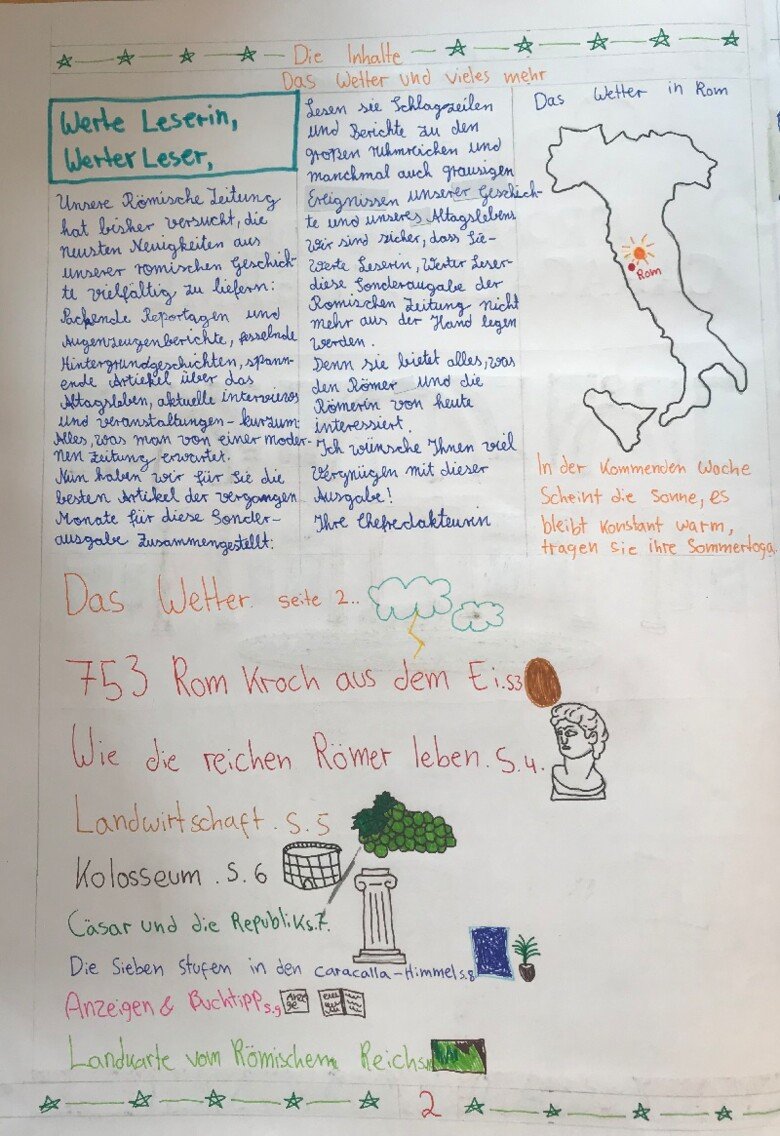 Die Inhalte
Das Wetter und vieles mehr
Werte Leserin,
Werter Leser,
Unsere Römische Zeitung
hat bisher versucht, die
neusten Neuigkeiten aus
unserer römischen Geschich-
te vielfältig zu liefern:
Packende Reportagen und
Augenzeugenberichte, fesselnde
Hintergrundgeschichten, spann-
ende Artiekel über das
Altagsleben, aktuelle interviews
und veranstaltungen - kurzum:
Alles, was man von einer moder-
nen Zeitung erwartet.
Nun haben wir für Sie die
besten Artikel der vergangen
Monate für diese Sonder-
ausgabe Zusammengestellt:
Lesen sie Schlagzeilen
und Berichte zu den
großen ruhmreichen und
manchmal auch grausigen
Ereignissen unserer Geschich-
te und unseres Altagslebens
Wir sind sicher, dass Sie-
Werte Leserin, Werter Leser-
diese Sonderaugabe der
Römischen Zeitung nicht
mehr aus der Hand legen
werden.
Denn sie bietet alles, was
den Römer und die
Römerin von heute
interessiert.
Ich wünsche Ihnen viel
Vergnügen mit dieser
Ausgabe!
Ihre Chefredakteurin
Das Wetter in Rom
Rom
In der Kommenden Woche
Scheint die Sonne, es
bleibt Konstant warm,
tragen sie ihre Sommertoga.
Das Wetter. seite 2..
753 Rom Kroch aus dem Ei.S3
Wie die reichen Römer leben. S.4.
Landwirtschaft. S.5
Kolosseum. S.6
Cäsar und die Republik s.7.
Die Sieben stufen in den Caracalla-Himmel s.8
Anzeigen & Buchtipp s.9
Anzei
ge
Landkarte vom Römischem Reich
2